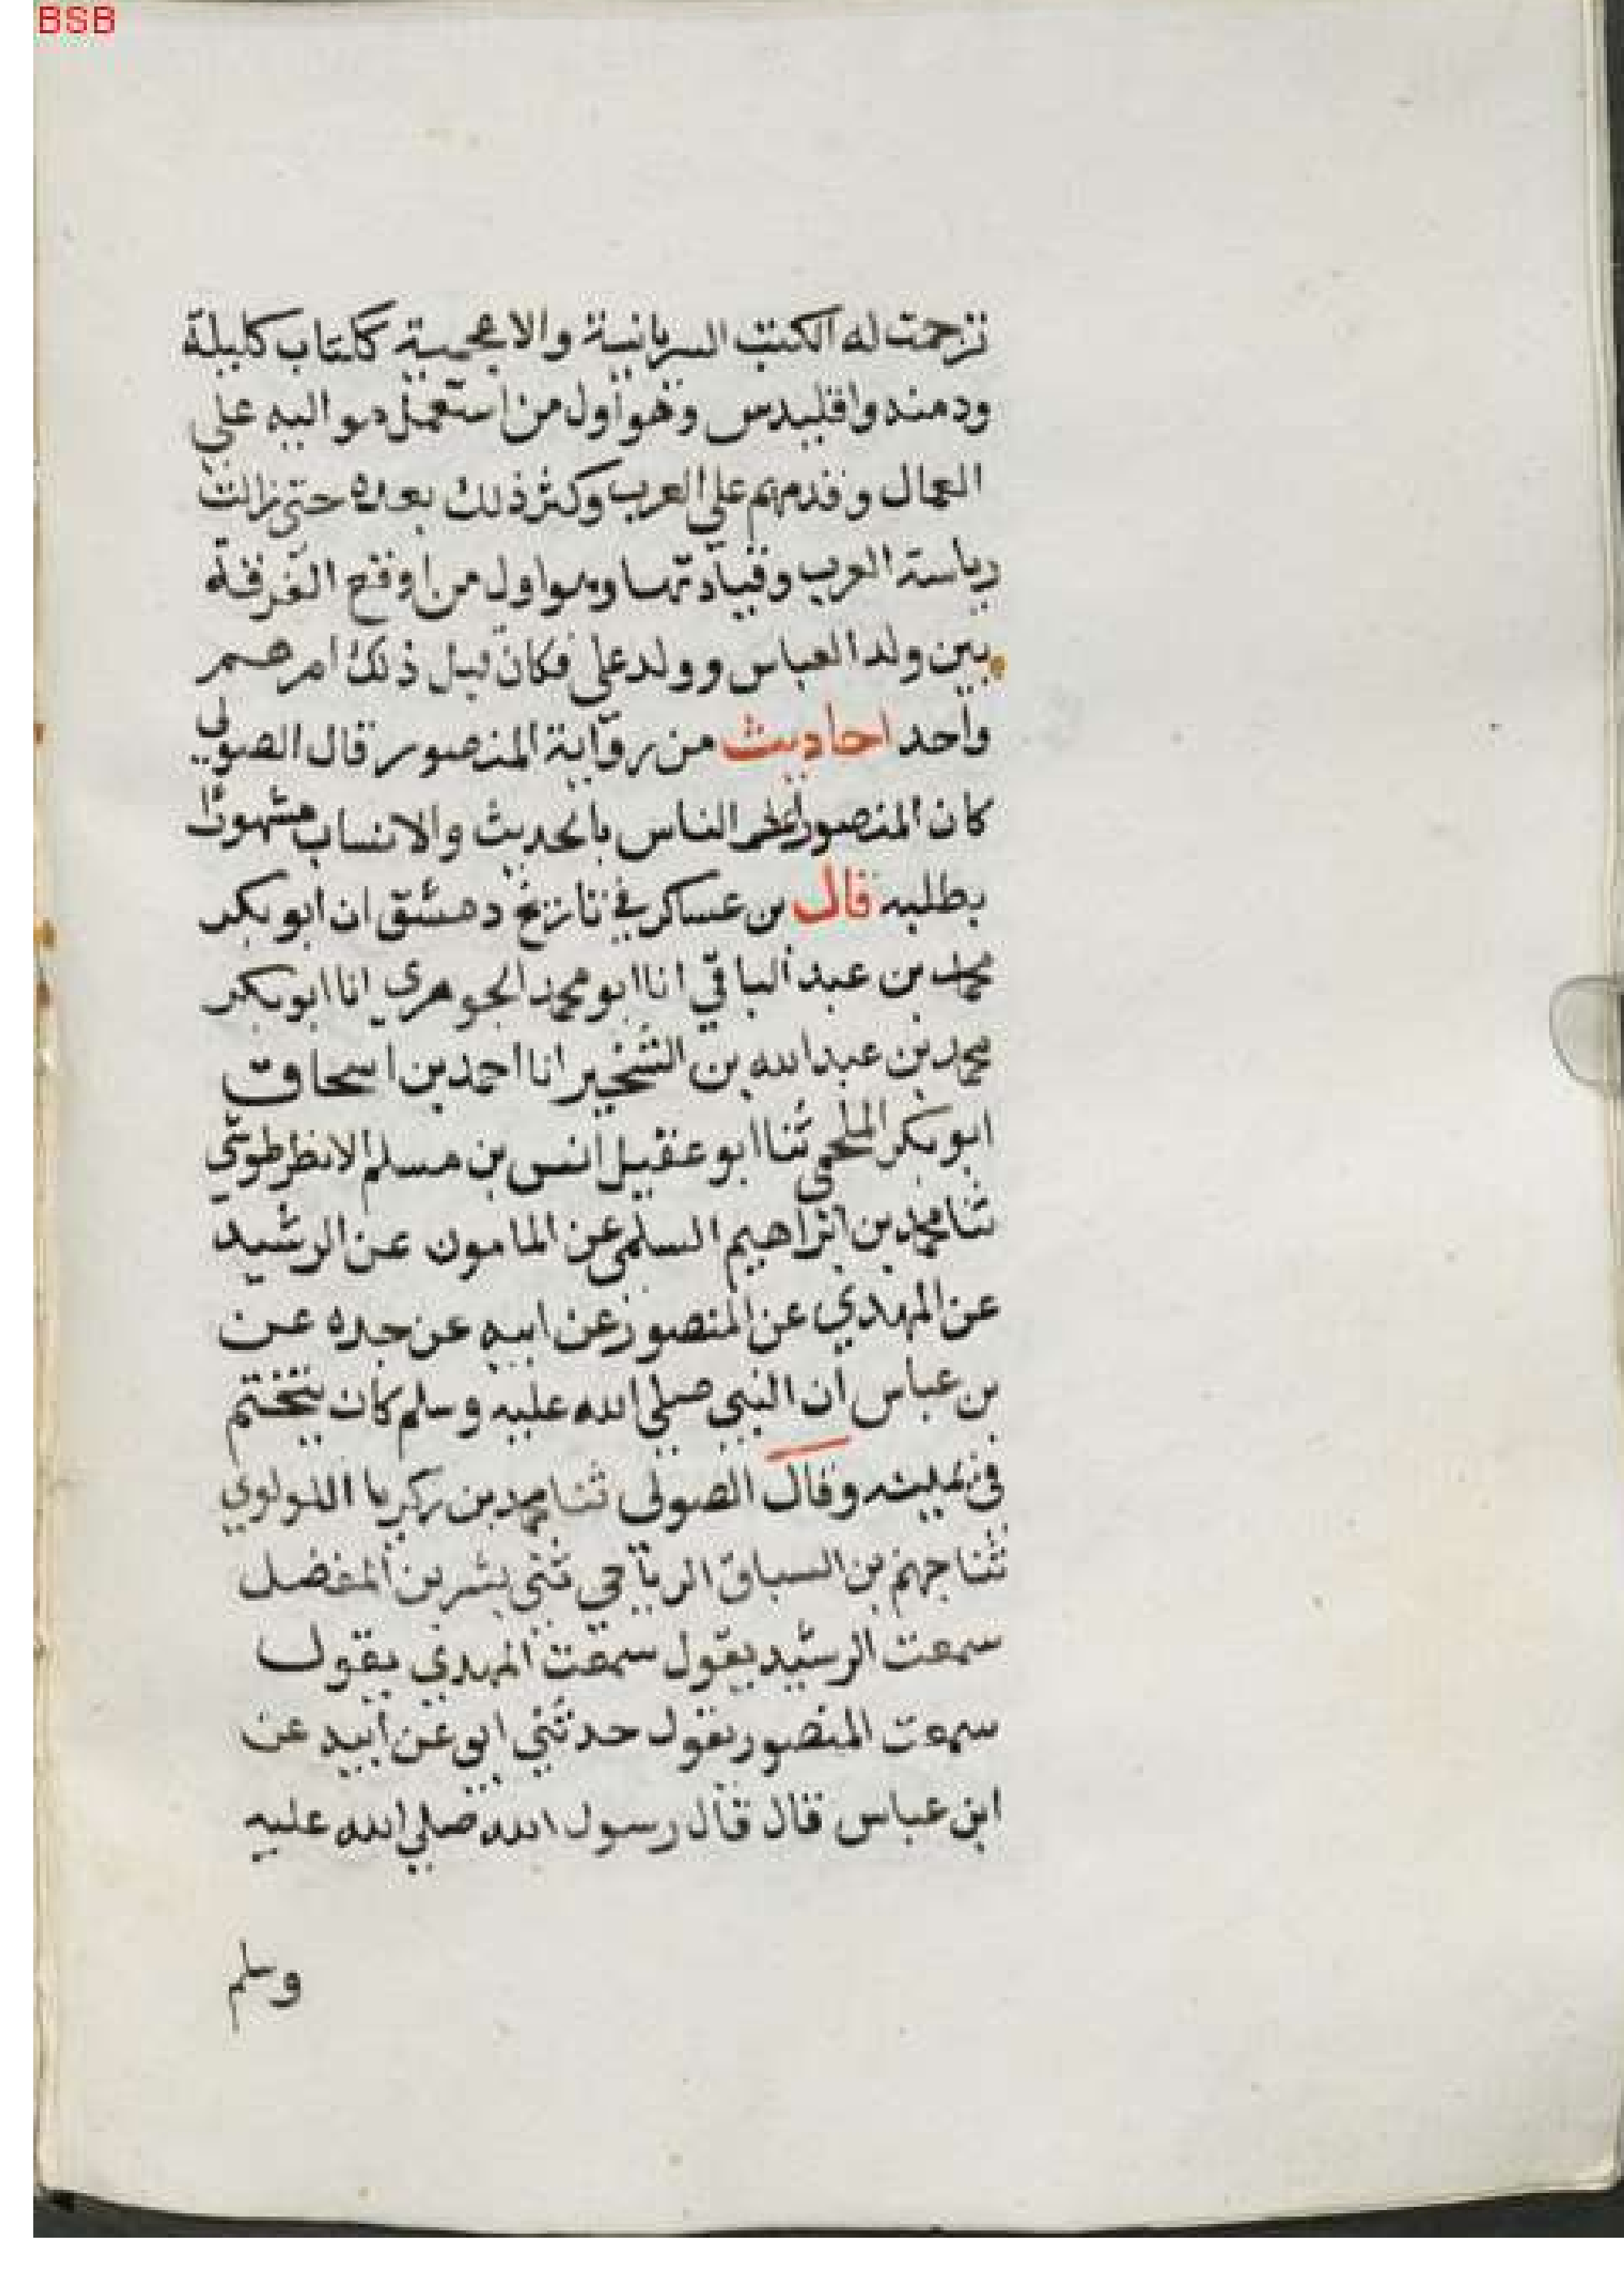 BSB
ترجمت له الكتب السريانية والاعجمية ككتاب كليلة
ودمنه واقليدس وهو اول من استعمل مواليه على
العمال وقدمهم على العرب وكثر ذلك بعده حتى زالت
رياسة العرب وقيادتها وهو اول من اوقع الفرقة
بين ولد العباس وولد على فكان قبل ذلك امرهم
واحد احاديث من رواية المنصور قال الصولي
كان المنصور اعلم الناس بالحديث والانساب مشهورا
بطلبه قال بن عساكر في تاريخ دمشق ان ابو بكر
محمد بن عبد الباقي انا ابو محمد الجوهري انا ابو بكر
محمد بن عبد الله بن الشخير انا احمد بن اسحاق
ابو بكر الملحمي ثنا ابو عقيل انس بن مسلم الانظرطوشي
ثنا محمد بن ابراهيم السلمى عن المامون عن الرشيد
عن المهدي عن المنصور عن ابيه عن جده عن
بن عباس ان النبي صلي الله عليه وسلم كان يتختم
في يمينه وقال الصولي ثنا محمد بن زكريا اللولوي
ثنا جهم بن السباق الرياحي ثني بشر بن المفضل
سمعت الرشيد يقول سمعت المهدي يقول
سمعت المنصور يقول حدثني ابي عن ابيه عن
ابن عباس قال قال رسول الله صلي الله عليه
وسلم